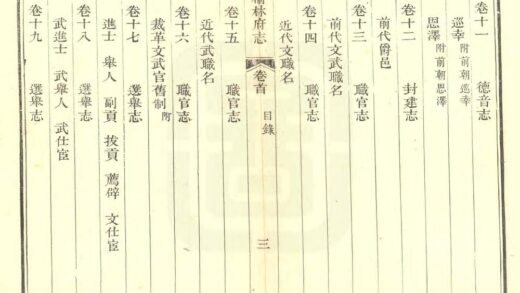 卷十一 德音志
巡幸 附前朝巡幸
恩澤 附前朝恩澤
卷十二 封建志
前代爵邑
卷十三 職官志
前代文武職名
卷十四 職官志
近代文職名
榆林府志 卷首 目錄 三
卷十五 職官志
近代武職名
卷十六 職官志
裁革文武官舊制附
卷十七 選舉志
進士 舉人 副貢 拔貢 薦辟 文仕宦
卷十八 選舉志
武進士 武舉人 武仕宦
卷十九 選舉志